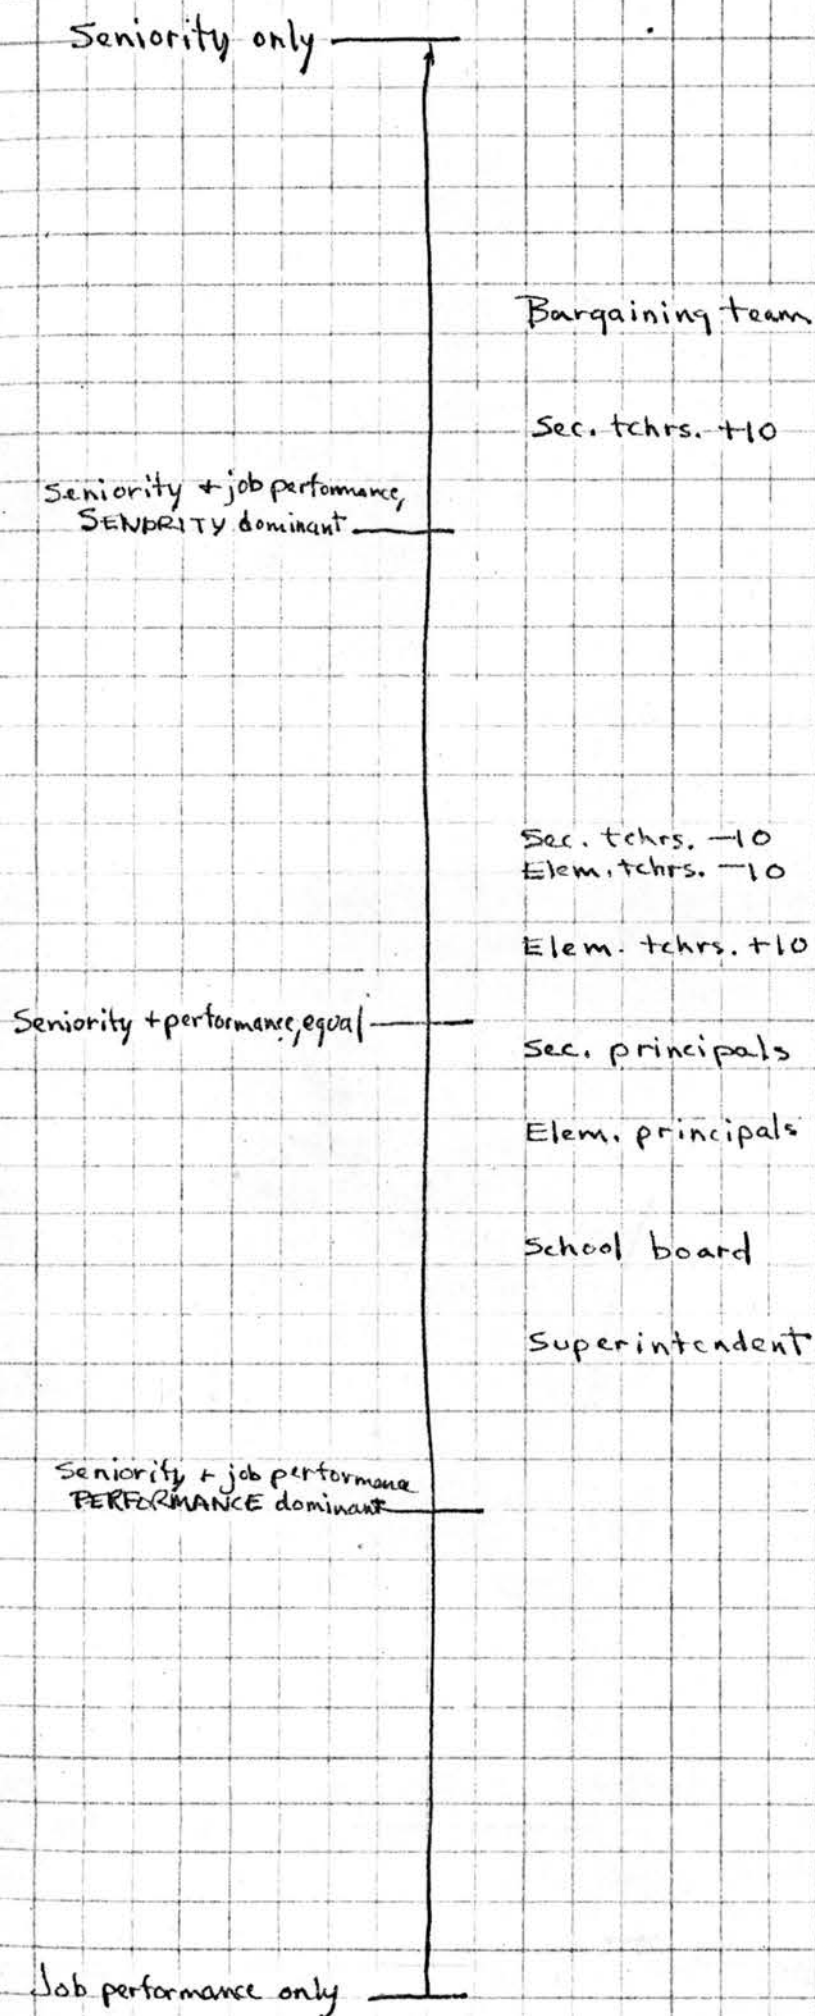 Seniority only
Bargaining team
Sec. tchrs. +10
Seniority + job performance,
SENORITY dominant
Sec. tchrs. -10
Elem. tchrs. -10
Elem. tchrs. +10
Seniority + performance, equal
Sec. principals
Elem. principals
School board
Superintendent
Seniority + job performance
PERFORMANCE dominant
Job performance only